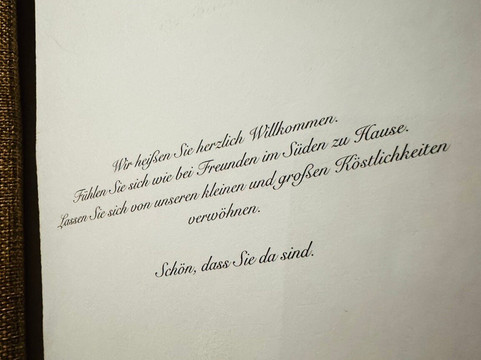 Wir heißen Sie herzlich Willkommen.
Fühlen Sie sich wie bei Freunden im Süden zu Hause.
Lassen Sie sich von unseren kleinen und großen Köstlichkeiten
verwöhnen.
Schön, dass Sie da sind.